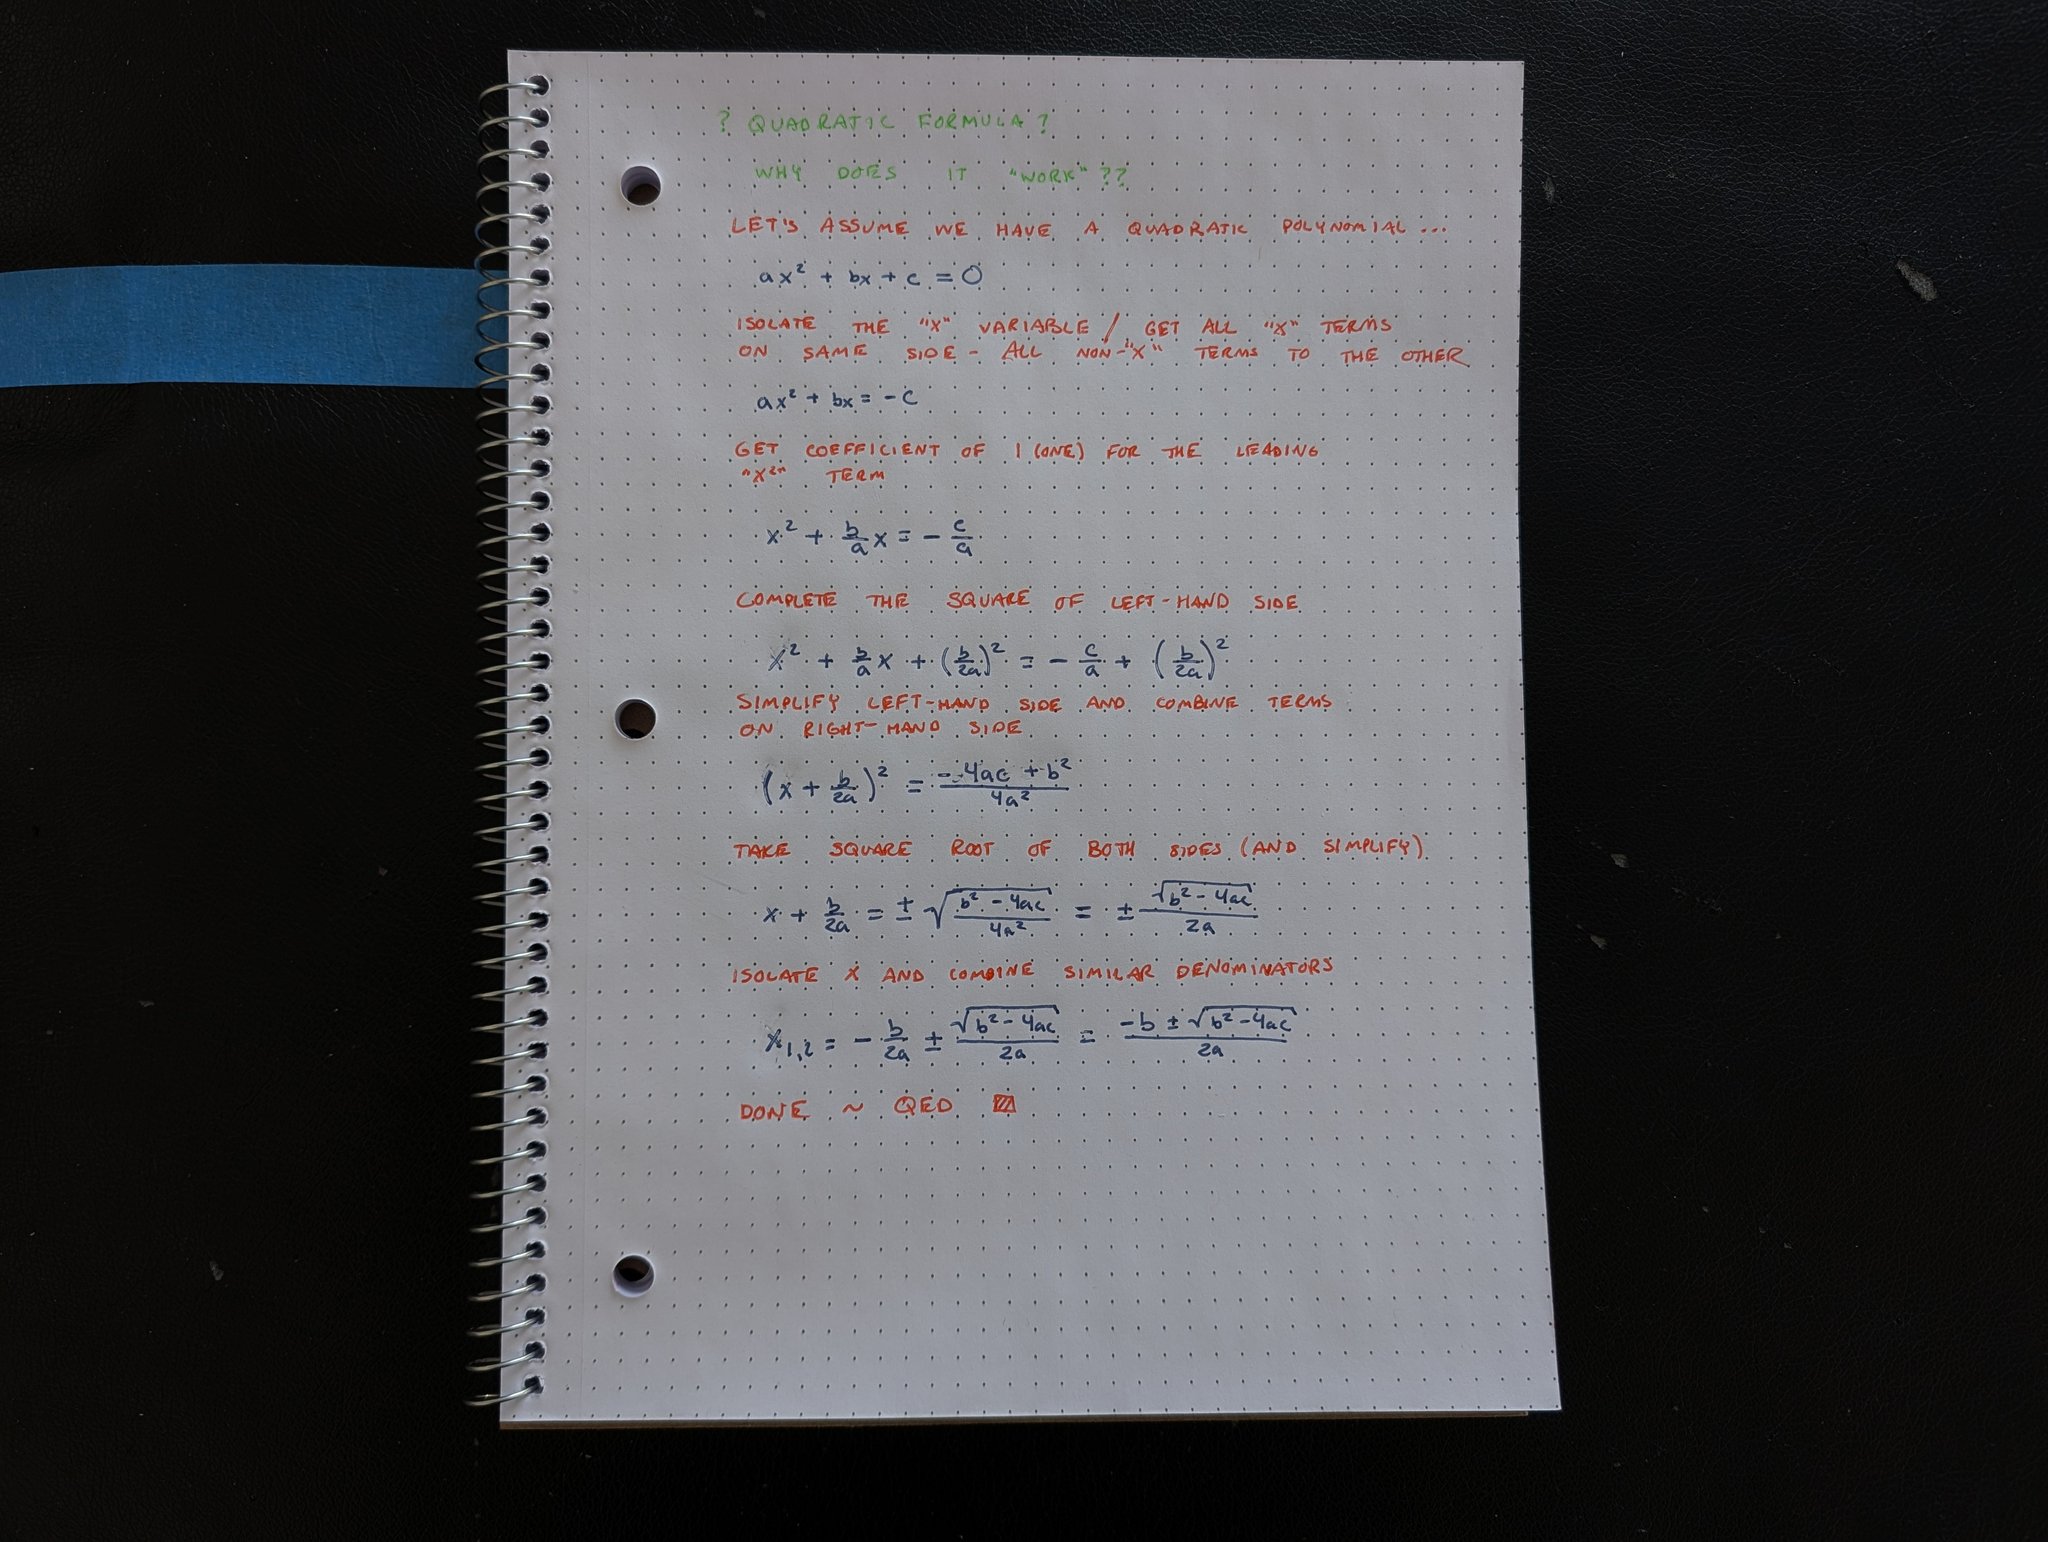 ? QUADRATIC FORMULA?
WHY DOES IT "WORK"??
LET'S ASSUME WE HAVE A QUADRATIC POLYNOMIAL...
ax² + bx + c = 0
ISOLATE THE "X" VARIABLE / GET ALL "X" TERMS
ON SAME SIDE - ALL NON-"X" TERMS TO THE OTHER
ax² + bx = -c
GET COEFFICIENT OF 1 (ONE) FOR THE LEADING
"X²" TERM
x² + b/a x = - c/a
COMPLETE THE SQUARE OF LEFT-HAND SIDE
x² + b/a x + (b/2a)² = - c/a + (b/2a)²
SIMPLIFY LEFT-HAND SIDE AND COMBINE TERMS
ON RIGHT-HAND SIDE
(x + b/2a)² = (-4ac + b²)/4a²
TAKE SQUARE ROOT OF BOTH SIDES (AND SIMPLIFY)
x + b/2a = ± √((b² - 4ac)/4a²) = ± √(b² - 4ac)/2a
ISOLATE X AND COMBINE SIMILAR DENOMINATORS
x₁,₂ = - b/2a ± √(b² - 4ac)/2a = (-b ± √(b² - 4ac))/2a
DONE ~ QED ▨